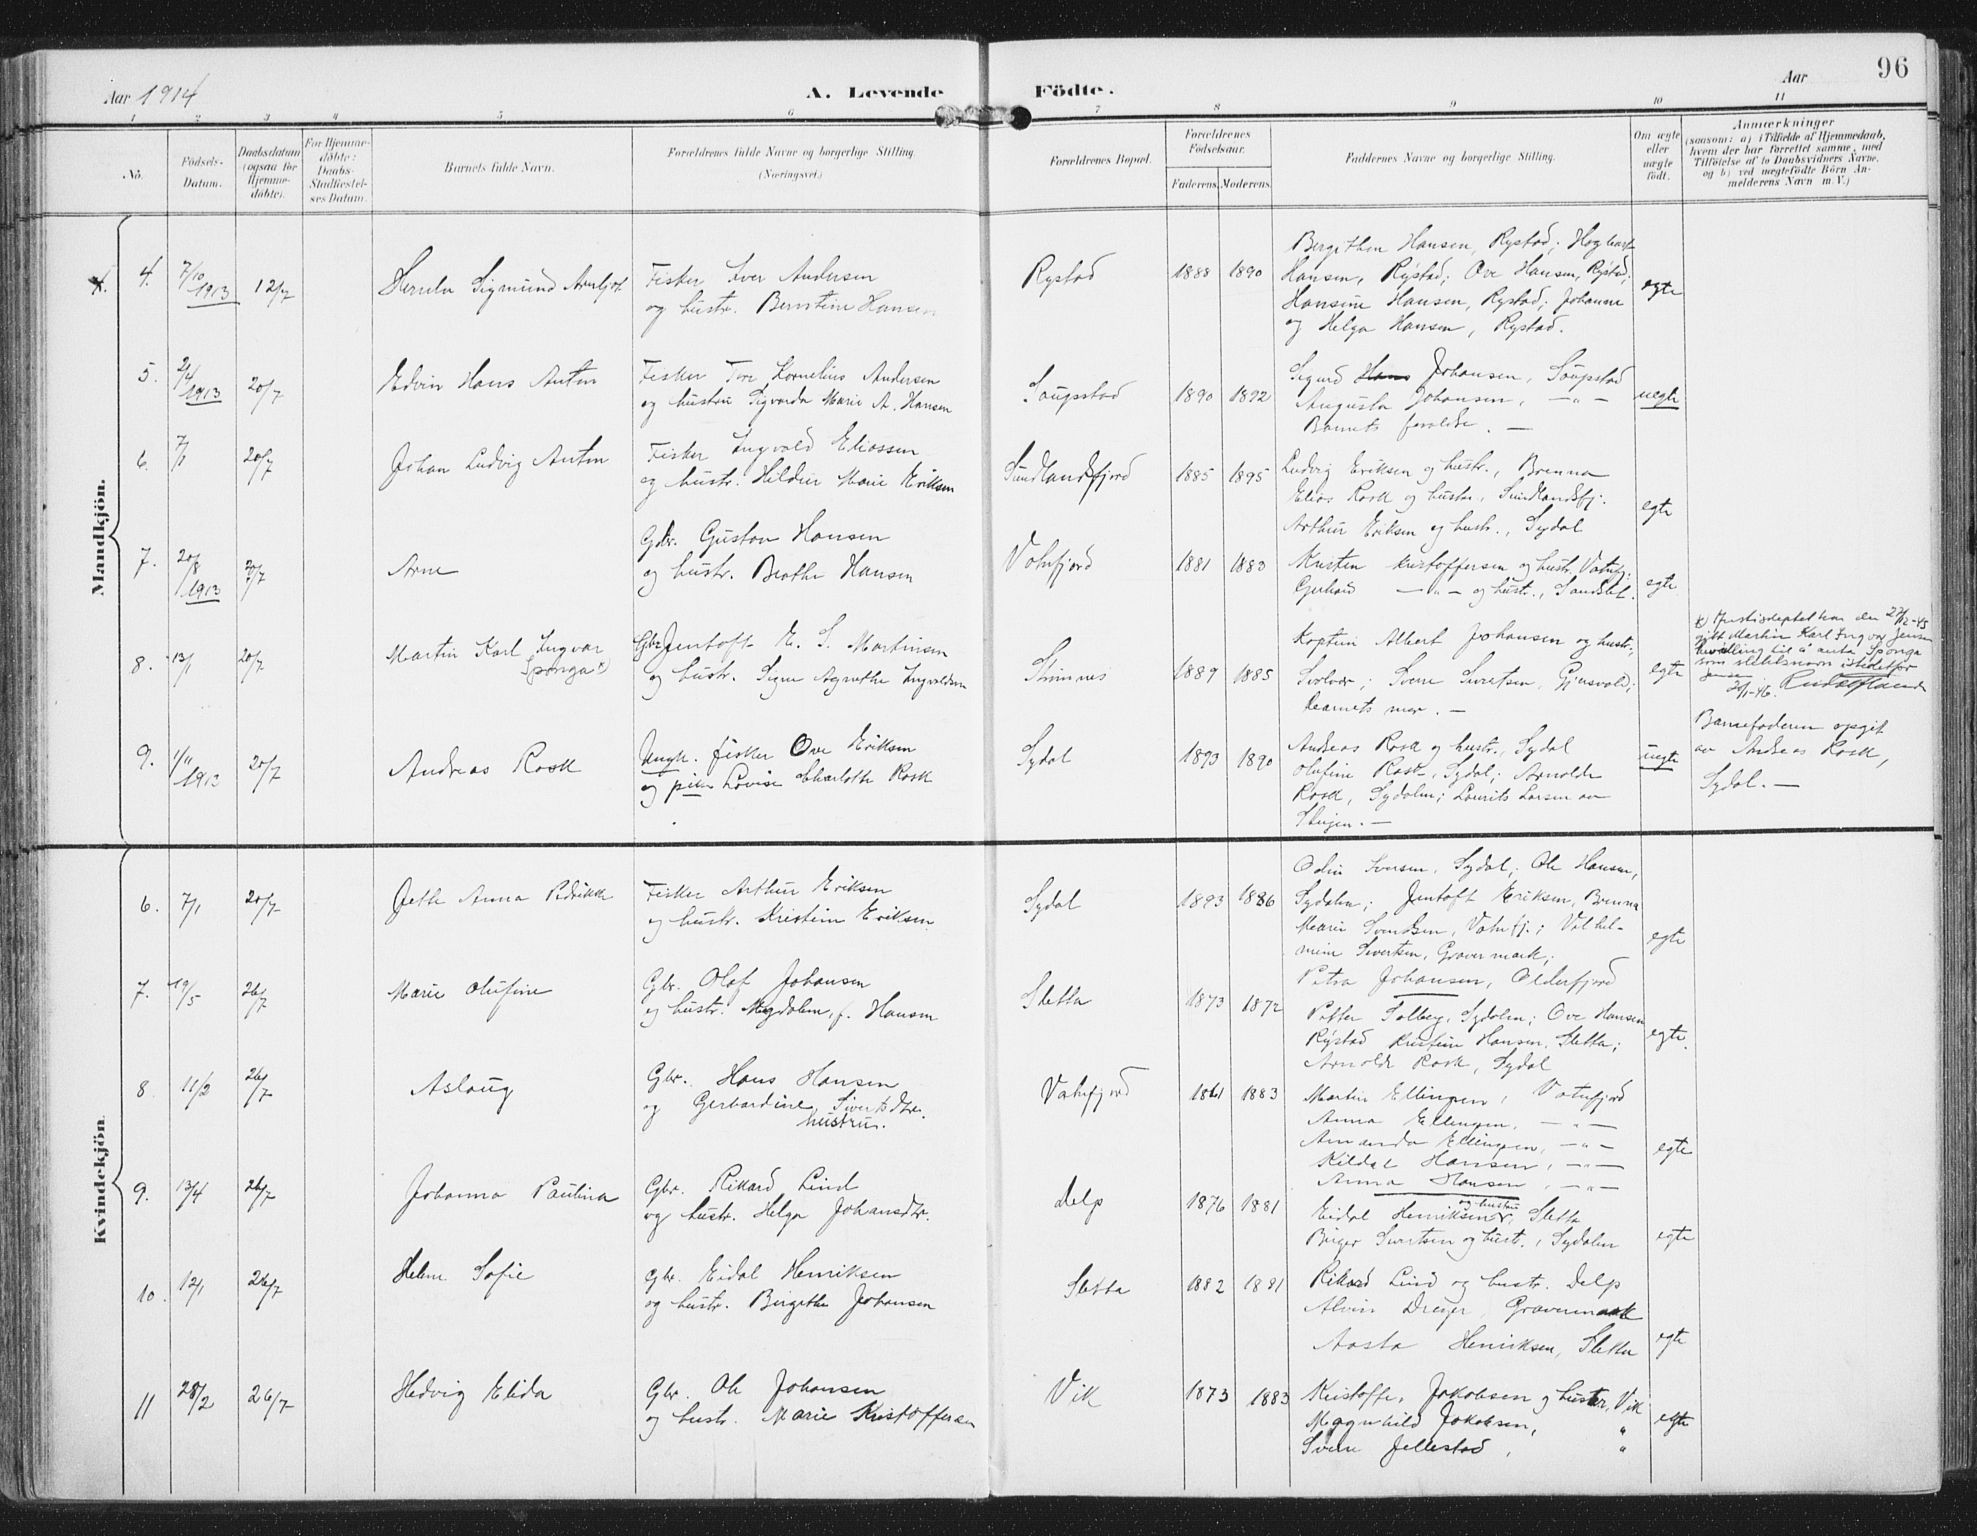 Aar 1914
A. Levende Födte.
Aar
96
1 2 3 4 5 6 7 8 9 10 11
No.
Födsels-Datum.
Daabsdatum (ogsaa för Hjemme-döbte).
For Hjemme-döbte: Daabs-Stadfæstel-ses Datum.
Barnets fulde Navn.
Forældrenes fulde Navne og borgerlige Stilling. (Næringsvei.)
Forældrenes Bopæl.
Forældrenes Födselsaar.
Faderens. Moderens.
Faddernes Navne og borgerlige Stilling.
Om ægte eller uægte födt.
Anmærkninger
(saasom: a) i Tilfælde af Hjemmedaab,
hvem der har forrettet samme, med
Tilföielse af to Daabsvidners Navne,
og b) ved uægtefödte Börn An-
melderens Navn m. V.)
Mandkjön.
4. 7/10 1913 12/7 Sigmund
Fisker Iver Andersen
og hustr. Berntine Hansen
Rystad 1888 1890
Hansen, Rystad;
Hansen, Rystad; Ove Hansen, Rystad;
Hansine Hansen, Rystad; Johanne
og Helga Hansen, Rystad.
egte
5. 2/4 1913 20/7 Edvin Hans Anton
Fisker Tore Kornelius Andersen
og hustru Sigvarda Marie A. Hansen
Saupstad 1890 1892
Sigurd Hans Johansen, Saupstad
Augusta Johansen, — " —
Barnets foreldre. —
uegte
6. 7/1 20/7 Johan Ludvig Anton
Fisker Ingvald Eliassen
og hustr. Hildur Marie Eriksen
Sundlandsfjord 1885 1895
Ludvig Eriksen og hustr., Brenna
Elias Rask og hustr., Sundlandsfj.
Arthur Eriksen og hustr., Sydal
egte
7. 20/8 1913 20/7 Arne
Gbr. Gustav Hansen
og hustr. Berthe Hansen
Vatnfjord 1881 1883
Kristen Kristoffersen og hustr. Vatnfj.
Gerhard — " — og hustr., Sandslet.
egte
8. 13/1 20/7 Martin Karl Ingvar
Sponga x)
Gbr. Jentoft E. S. Martinsen
og hustr. Signe Agnethe Ingvaldsen
1889 1885
Kaptein Albert Johansen og hustr.,
Svolvær; Sverre Sivertsen, Gjersvold;
Barnets mor. —
egte
x) Justisdeptet har den 27/12-45
gitt Martin Karl Ingvar Jensen
bevilling til å anta Sponga
som slektsnavn istedetfor
Jensen
20/1-46.
9. 1/11 1913 20/7 Andreas Rask
Ungk. fisker Ove Eriksen
og pike Lovise Charlotte Rask
Sydal 1893 1890
Andreas Rask og hustr., Sydal
Olufine Rask, Sydal; Arnolde
Rask, Sydalen; Laurits Larsen av
uegte
Barnefaderen opgit
av Andreas Rask,
Sydal. —
Kvindekjön.
6. 7/1 20/7 Jette Anna Pedrikke
Fisker Arthur Eriksen
og hustr. Kristine Eriksen
Sydal 1893 1886
Odin Iversen, Sydal; Ole Hansen,
Sydalen; Jentoft Eriksen, Brenna
Marie Svendsen, Vatnfj.; Vilhel-
mine Sivertsen, Gravermark;
Petra Johansen, Olderfjord
egte
7. 19/5 26/7 Marie Olufine
Gbr. Olaf Johansen
og hustr. Magdalen, f. Hansen
Sletta 1873 1872
Petter Solberg, Sydalen; Ove Hansen
Rystad Kristine Hansen, Sletta;
Arnolde Rask, Sydal
egte.
8 11/2 26/7 Aslaug
Gbr. Hans Hansen
og Gerhardine Sivertsdtr.
hustru.
Vatnfjord 1861 1883
Martin Ellingsen, Vatnfjord
Anna Ellingsen, — " —
Amanda Ellingsen, — " —
Kildal Hansen, — " —
Anna Hansen, — " —
egte
9. 13/4 26/7 Johanna Paulina
Gbr. Rikard Lind
og hustr. Helga Johansdtr.
Delp 1876 1881
og hustru
Eidal Henriksen, Sletta
Birger Sivertsen og hustr., Sydalen
egte
10. 12/1 26/7 Helene Sofie
Gbr. Eidal Henriksen
og hustr. Birgithe Johansen
Sletta 1882 1881
Rikard Lind og hustr. Delp
Alvin Dreyer, Gravermark
Aasta Henriksen, Sletta
egte
11 28/2 26/7 Hedvig Elida
Gbr. Ole Johansen
og hustr. Marie Kristoffersen
Vik 1873 1883
Kristoffer Jakobsen og hustr, Vik
Magnhild Jakobsen, "
Sverre Jellestad, "
egte